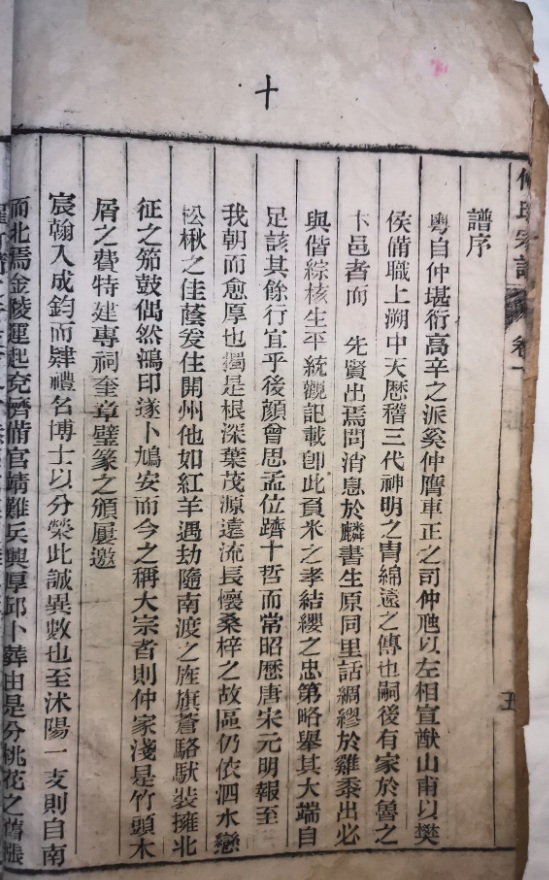 十
仲氏宗譜 卷一
五
譜序
粵自仲堪衍高辛之派奚仲膺車正之司仲虺以左相宣猷山甫以樊
侯備職上溯中天歷稽三代神明之胄綿遠之傳也嗣後有家於魯之
卞邑者而 先賢出焉問消息於麟書生原同里話綢繆於雞黍出必
與偕綜核生平統觀記載卽此負米之孝結纓之忠第略舉其大端自
足該其餘行宜乎後顏曾思孟位躋十哲而常昭歷唐宋元明報至
我朝而愈厚也獨是根深葉茂源遠流長懷桑梓之故區仍依泗水戀
松楸之佳蔭爰住開州他如紅羊遇劫隨南渡之旌旗蒼駱馱裝擁北
征之笳鼓偶然鴻印遂卜鳩安而今之稱大宗者則仲家淺是竹頭木
屑之費特建專祠奎章璧篆之頒屢邀
宸翰入成鈞而肄禮名博士以分榮此誠異數也至沭陽一支則自南
而北焉金陵運起兗濟備官靖難兵興厚邱卜葬由是分桃花之舊漲